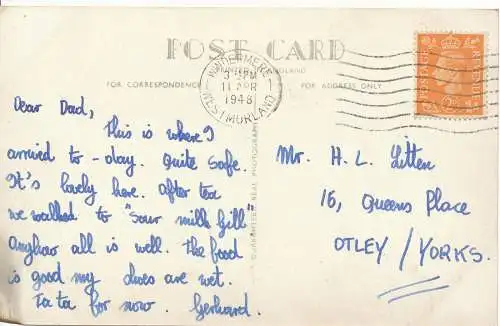 POST CARD
FOR CORRESPONDENCE
FOR ADDRESS ONLY
WINDERMERE
3-PM
11 APR
1948
WESTMORLAND
POSTAGE
REVENUE
Dear Dad,
This is where I
arrived to-day. Quite safe.
It's lovely here. After tea
we walked to "Sour milk Gill"
Anyhow all is well. The food
is good my shoes are wet.
Ta ta for now. Gerhard.
Mr. H. L. Litten
16, Queens Place
OTLEY / YORKS.
REAL PHOTOGRAPH